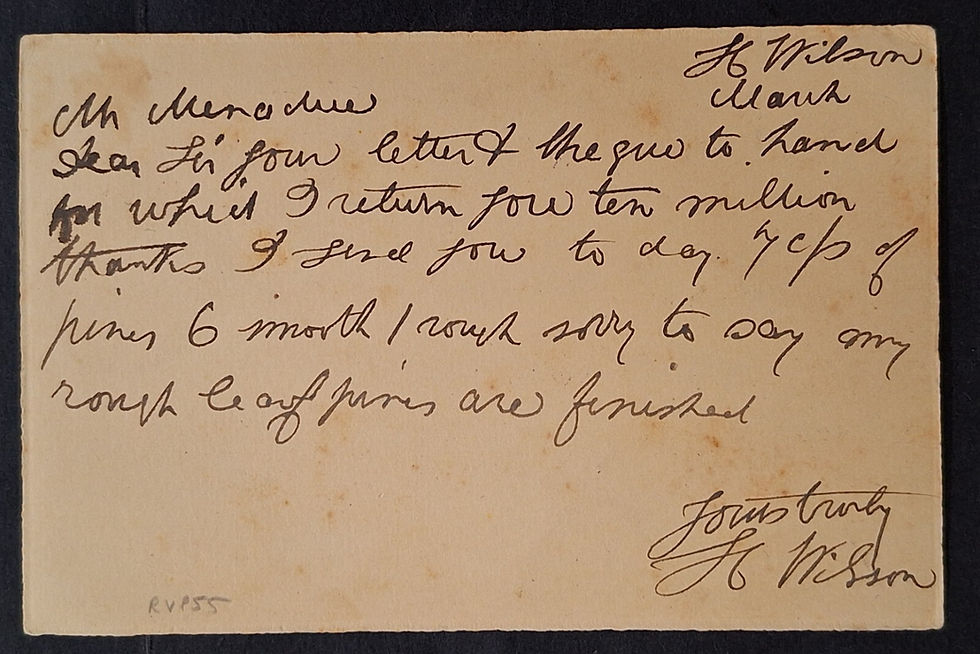 H Wilson
March
Mr Menadue
Dear Sir your letter & Cheque to hand
for which I return you ten million
thanks I send you to day 7 c/s of
pines 6 smooth 1 rough sorry to say my
rough leaf pines are finished
yours truly
H Wilson
RVP55